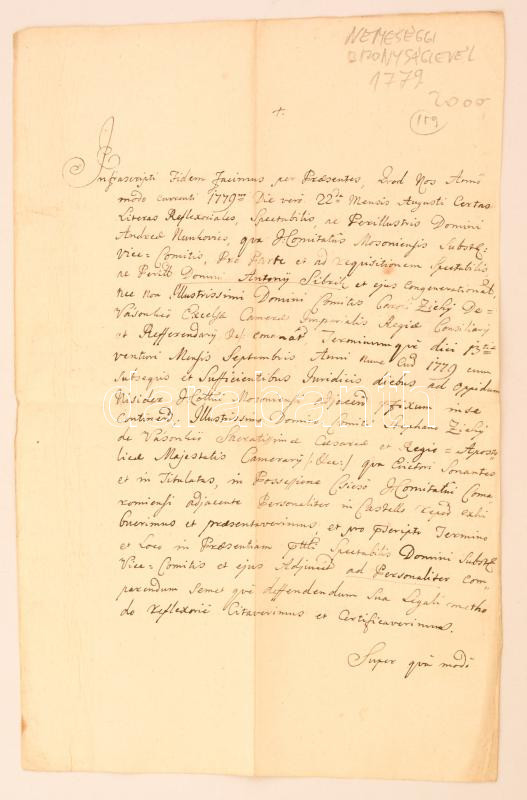 NEMESÉGGI
BIZONYSÁGLEVÉL
1779
2000
159
Infrascripti Fidem Facimus per Præsentes, Quod Nos Anno
modo currenti 1779no Die vero 22da Mensis Augusti Certas
Literas Reflexoriales, Spectabilis, ac Perillustris Domini
Andreæ Nunkovics, qua I. Comitatus Mosoniensis Substit.
Vice-Comitis, Pro Parte et ad requisitionem Spectabilis
ac Perill. Domini Antonij Sibrik et ejus Congenerationat.
nec non Illustrissimi Domini Comitis Caroli Zichÿ De
Vásonkeö Excelsæ Cameræ Imperialis Regiæ Consiliarÿ
et Refferendarÿ emanat. Terminumque diei
venturi Mensis Septembris Anni Nunc 1779 cum
subsequis et Sufficientibus Juridicis diebus ad Oppidum
Nisider I. Cottui Mosoniensi fixum in se
Continend. Illustrissimo Domino Comiti Stephano Zichÿ
de Vásonkeö Sacratissimæ Cæsareæ et Regio-Aposto
licæ Majestatis Camerarÿ qua Evictori Sonantes
et in Titulatas, in Possessione Csicsó I. Comitatui Coma
romiensi adjacente Personaliter in Castello exhi
buerimus et præsentaverimus, et pro pscripto Termino
et Loco in Præsentiam Spectabilis Domini Substit.
Vice-Comitis et ejus ad Personaliter Com
parendum semet qve deffendendum Sua Legali metho
do reflexorie Citaverimus et Certificaverimus.
Super qva modo
darabanth